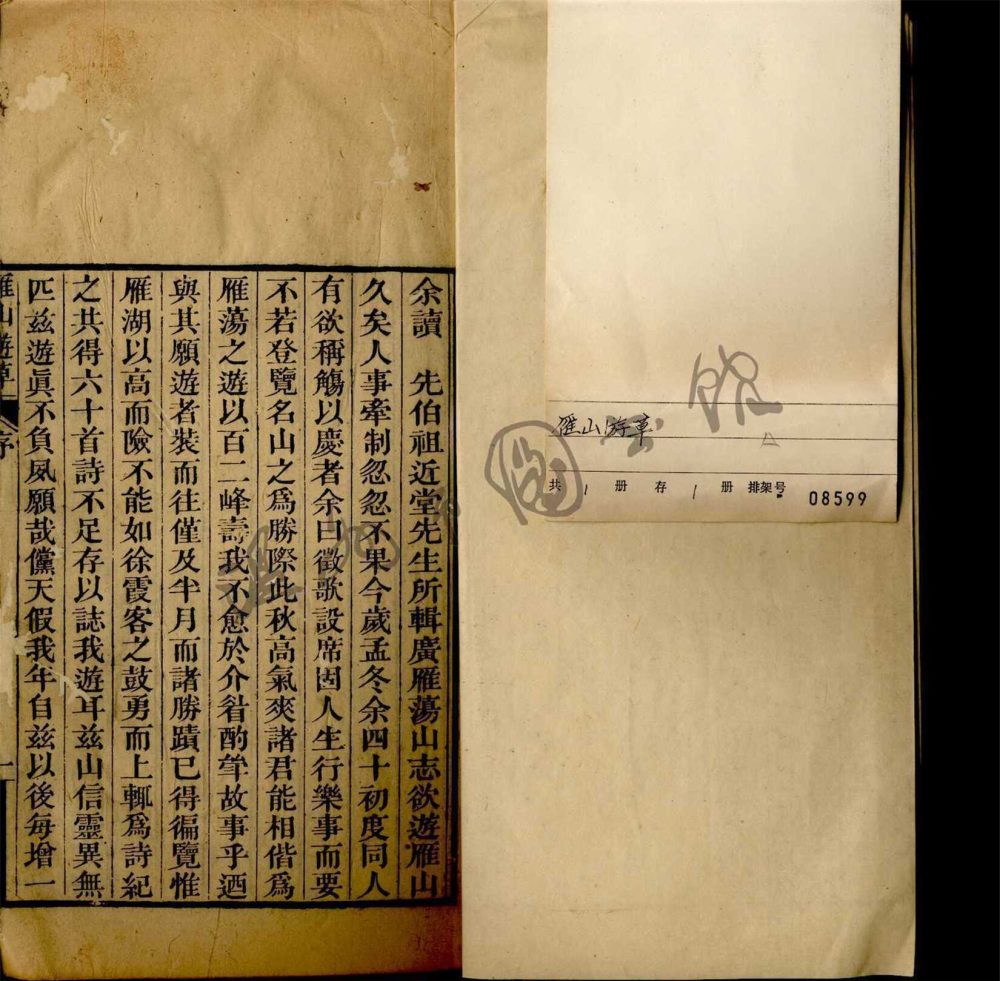 雁山游草
共 1 册 存 1 册 排架号 08599
余讀 先伯祖近堂先生所輯廣雁蕩山志欲遊雁山
久矣人事牽制忽忽不果今歲孟冬余四十初度同人
有欲稱觴以慶者余曰徵歌設席固人生行樂事而要
不若登覽名山之爲勝際此秋高氣爽諸君能相偕爲
雁蕩之遊以百二峰壽我不愈於介眉酌斝故事乎迺
與其願遊者裝而往僅及半月而諸勝蹟已得徧覽惟
雁湖以高而險不能如徐霞客之鼓勇而上輒爲詩紀
之共得六十首詩不足存以誌我遊耳茲山信靈異無
匹茲遊眞不負夙願哉儻天假我年自茲以後每增一
雁山遊草 序 一